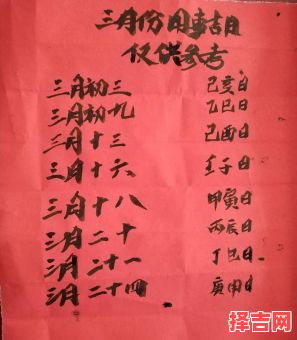 三月份用事吉日
仅供参考
三月初三 己亥日
三月初九 乙巳日
三月十三 己酉日
三月十六 壬子日
三月十八 甲寅日
三月二十 丙辰日
三月二十一 丁巳日
三月二十四 庚申日
择吉网